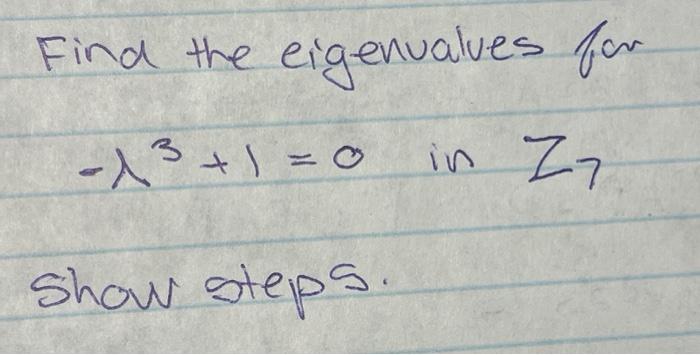 Find the eigenvalues for
-λ³ + 1 = 0 in Z₇
Show steps.